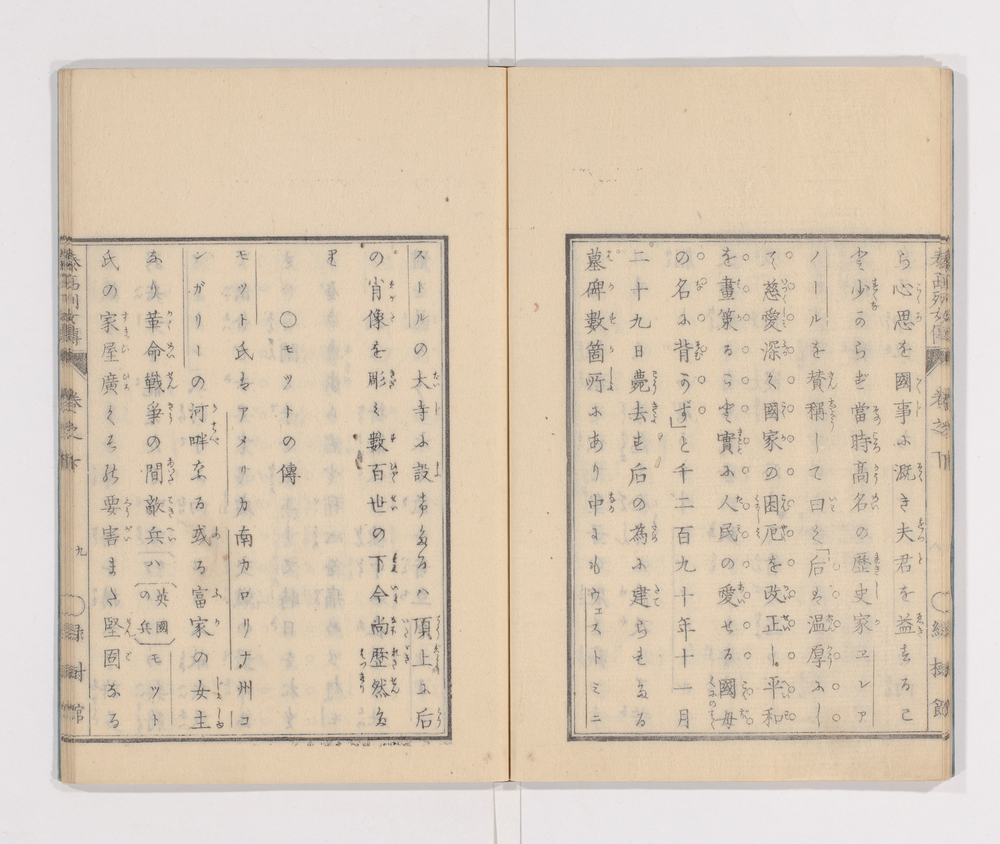 ら心思を國事に漑き夫君を益するこ
と少からず當時高名の歴史家エレア
ノールを賛稱して曰く「后は温厚にし
て慈愛深く國家の困厄を改正し平和
を畫策するを實に人民の愛せる國母
の名に背かず」と千二百九十年十一月
二十九日薨去す后の為に建らるたる
墓碑數箇所にあり中にもウェストミニ
ストルの大寺に設けたるハ頂上に后
の肖像を彫く數百世の下今尚歴然た
り
〇モットの傳
モット氏はアメリカ南カロリナ州コ
ンガリーの河畔なる或る富家の女主
なり革命戰爭の間敵兵ハ(英國の兵)モット
氏の家屋廣くして要害また堅固なる
泰西列女傳 卷之下 九 緑樹館